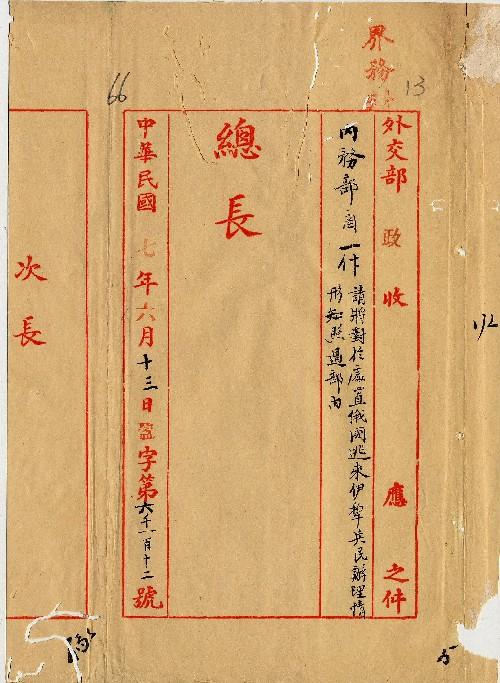 界務
13
外交部 政 收 應 之件
內務部函一件
請將對於處置俄國逃來伊犂兵民辦理情
形知照過部由
總長
中華民國七年六月十三日盈字第六千一百十二號
66
次長